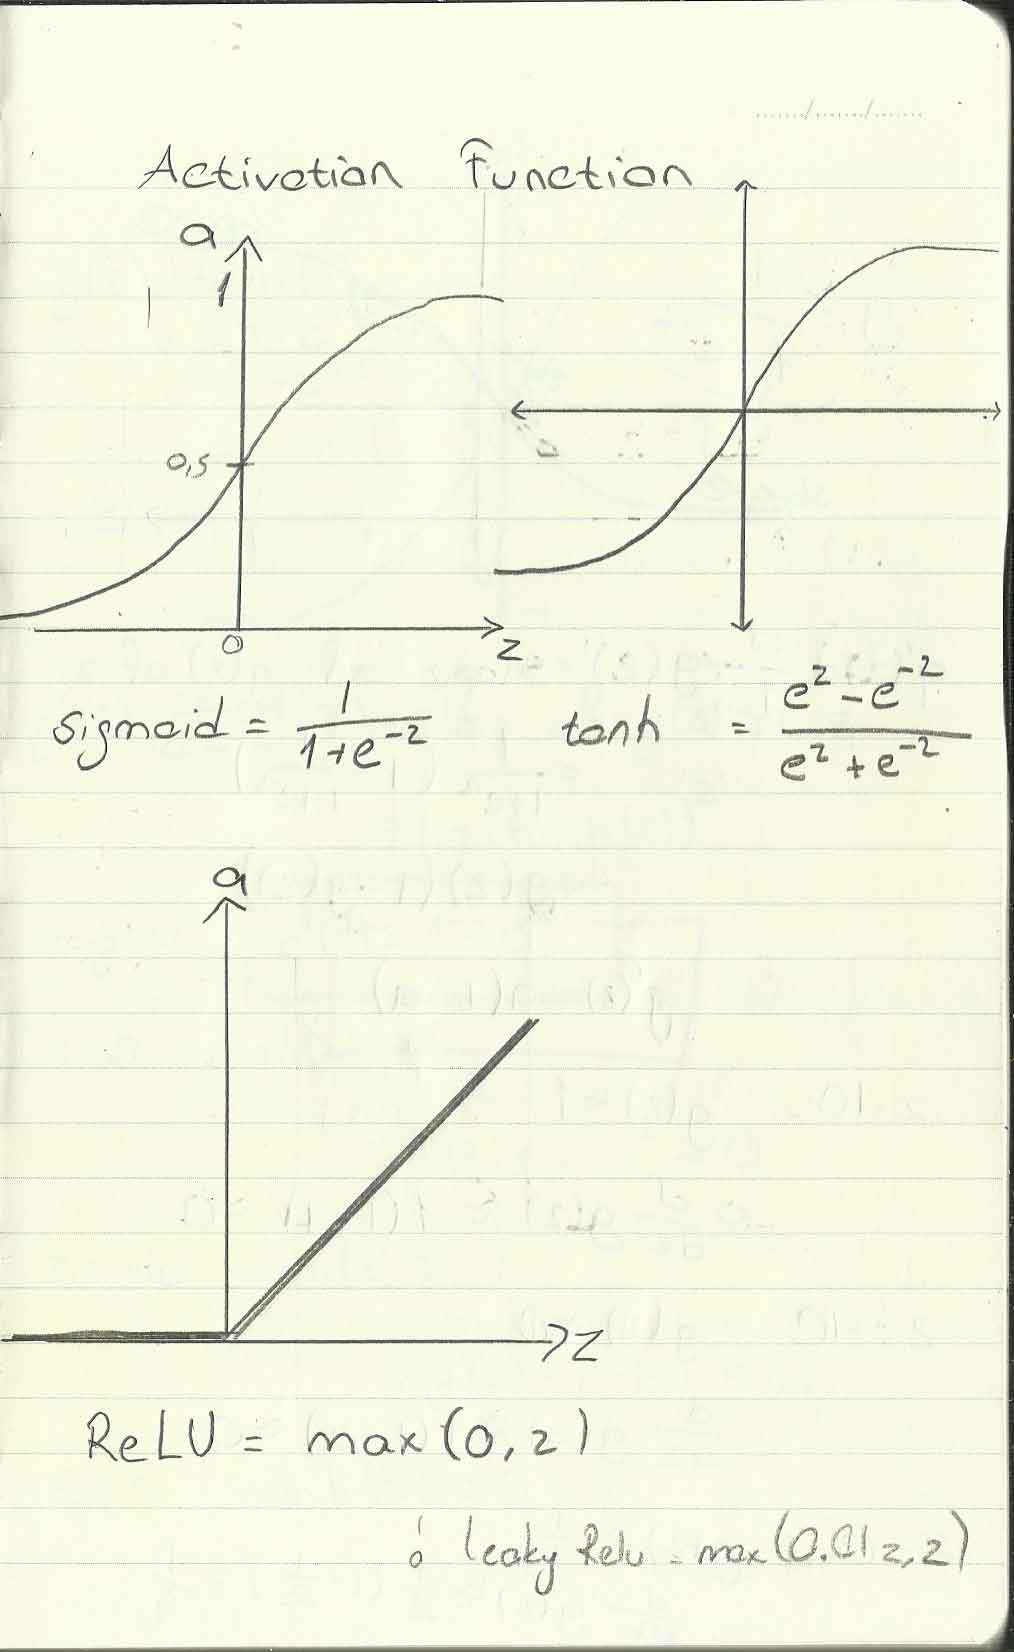 Activation Function
a
1
0,5
0
z
sigmoid = 1/(1+e^-z)
tanh = (e^z - e^-z)/(e^z + e^-z)
a
z
ReLU = max(0, z)
leaky Relu = max(0.01z, z)